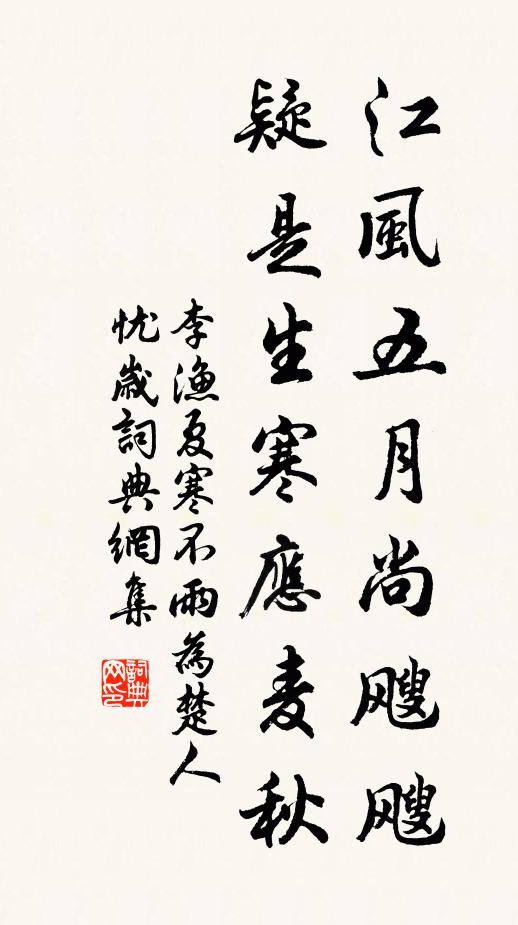 江風五月尚颼颼
疑是生寒應麦秋
李漁夏寒不雨為楚人
忧歲詞典網集
詞典
网印